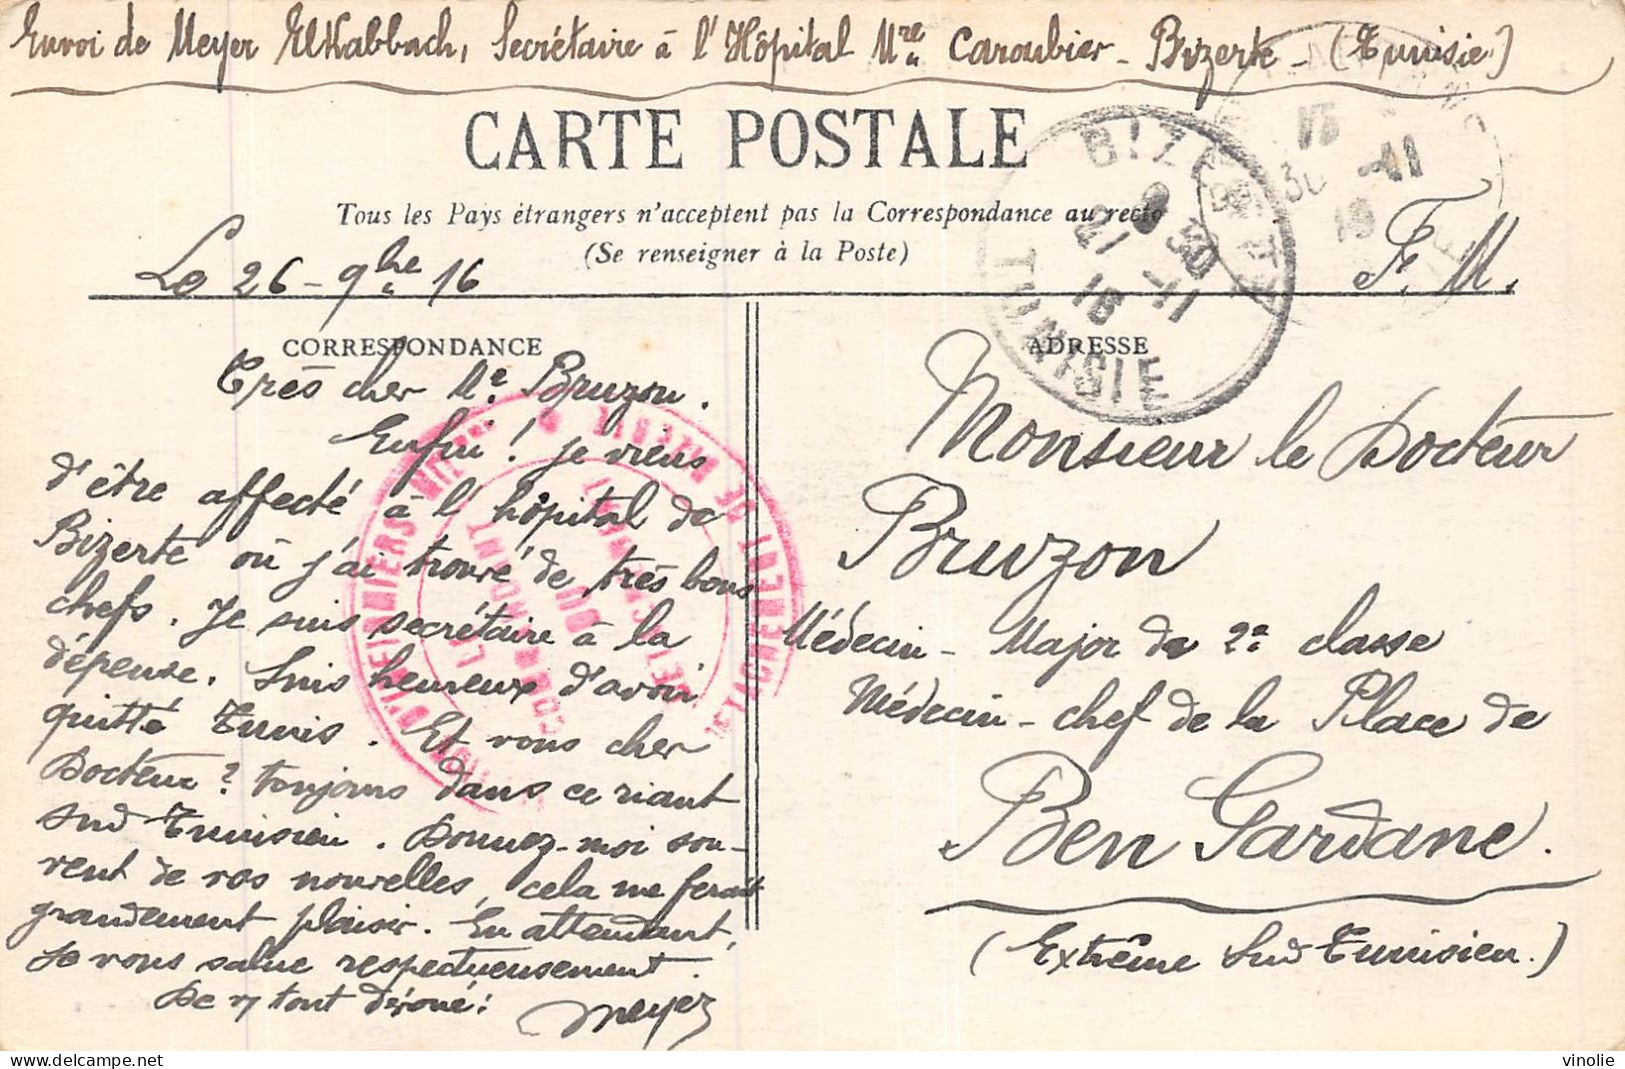 Envoi de Meyer ElKabbach, Secrétaire à l'Hôpital Mre Caroubier - Bizerte - (Tunisie)
CARTE POSTALE
Tous les Pays étrangers n'acceptent pas la Correspondance au recto
(Se renseigner à la Poste)
Le 26 - 9bre 16
F. M.
CORRESPONDANCE
Très cher Mr. Bruzon.
Enfin! je viens
d'être affecté à l'hôpital de
Bizerte où j'ai trouvé de très bons
chefs. Je suis secrétaire à la
dépense. Suis heureux d'avoir
quitté Tunis. Et vous cher
Docteur? toujours dans ce riant
Sud-Tunisien. Donnez-moi sou-
vent de vos nouvelles, cela me ferait
grandement plaisir. En attendant,
Je vous salue respectueusement.
De v/ tout dévoué:
Meyer
ADRESSE
Monsieur le Docteur
Bruzon
Médecin-Major de 2e classe
Médecin-chef de la Place de
Ben Gardane.
(Extrême Sud Tunisien.)
BIZERTE
9 30
27 -11
16
TUNISIE
15 30
-11
16
D'INFIRMIERS MILITAIRES
DÉTACHEMENT DE BIZERTE
LE
COMMANDANT
DU
DÉTACHEMENT
vinolie